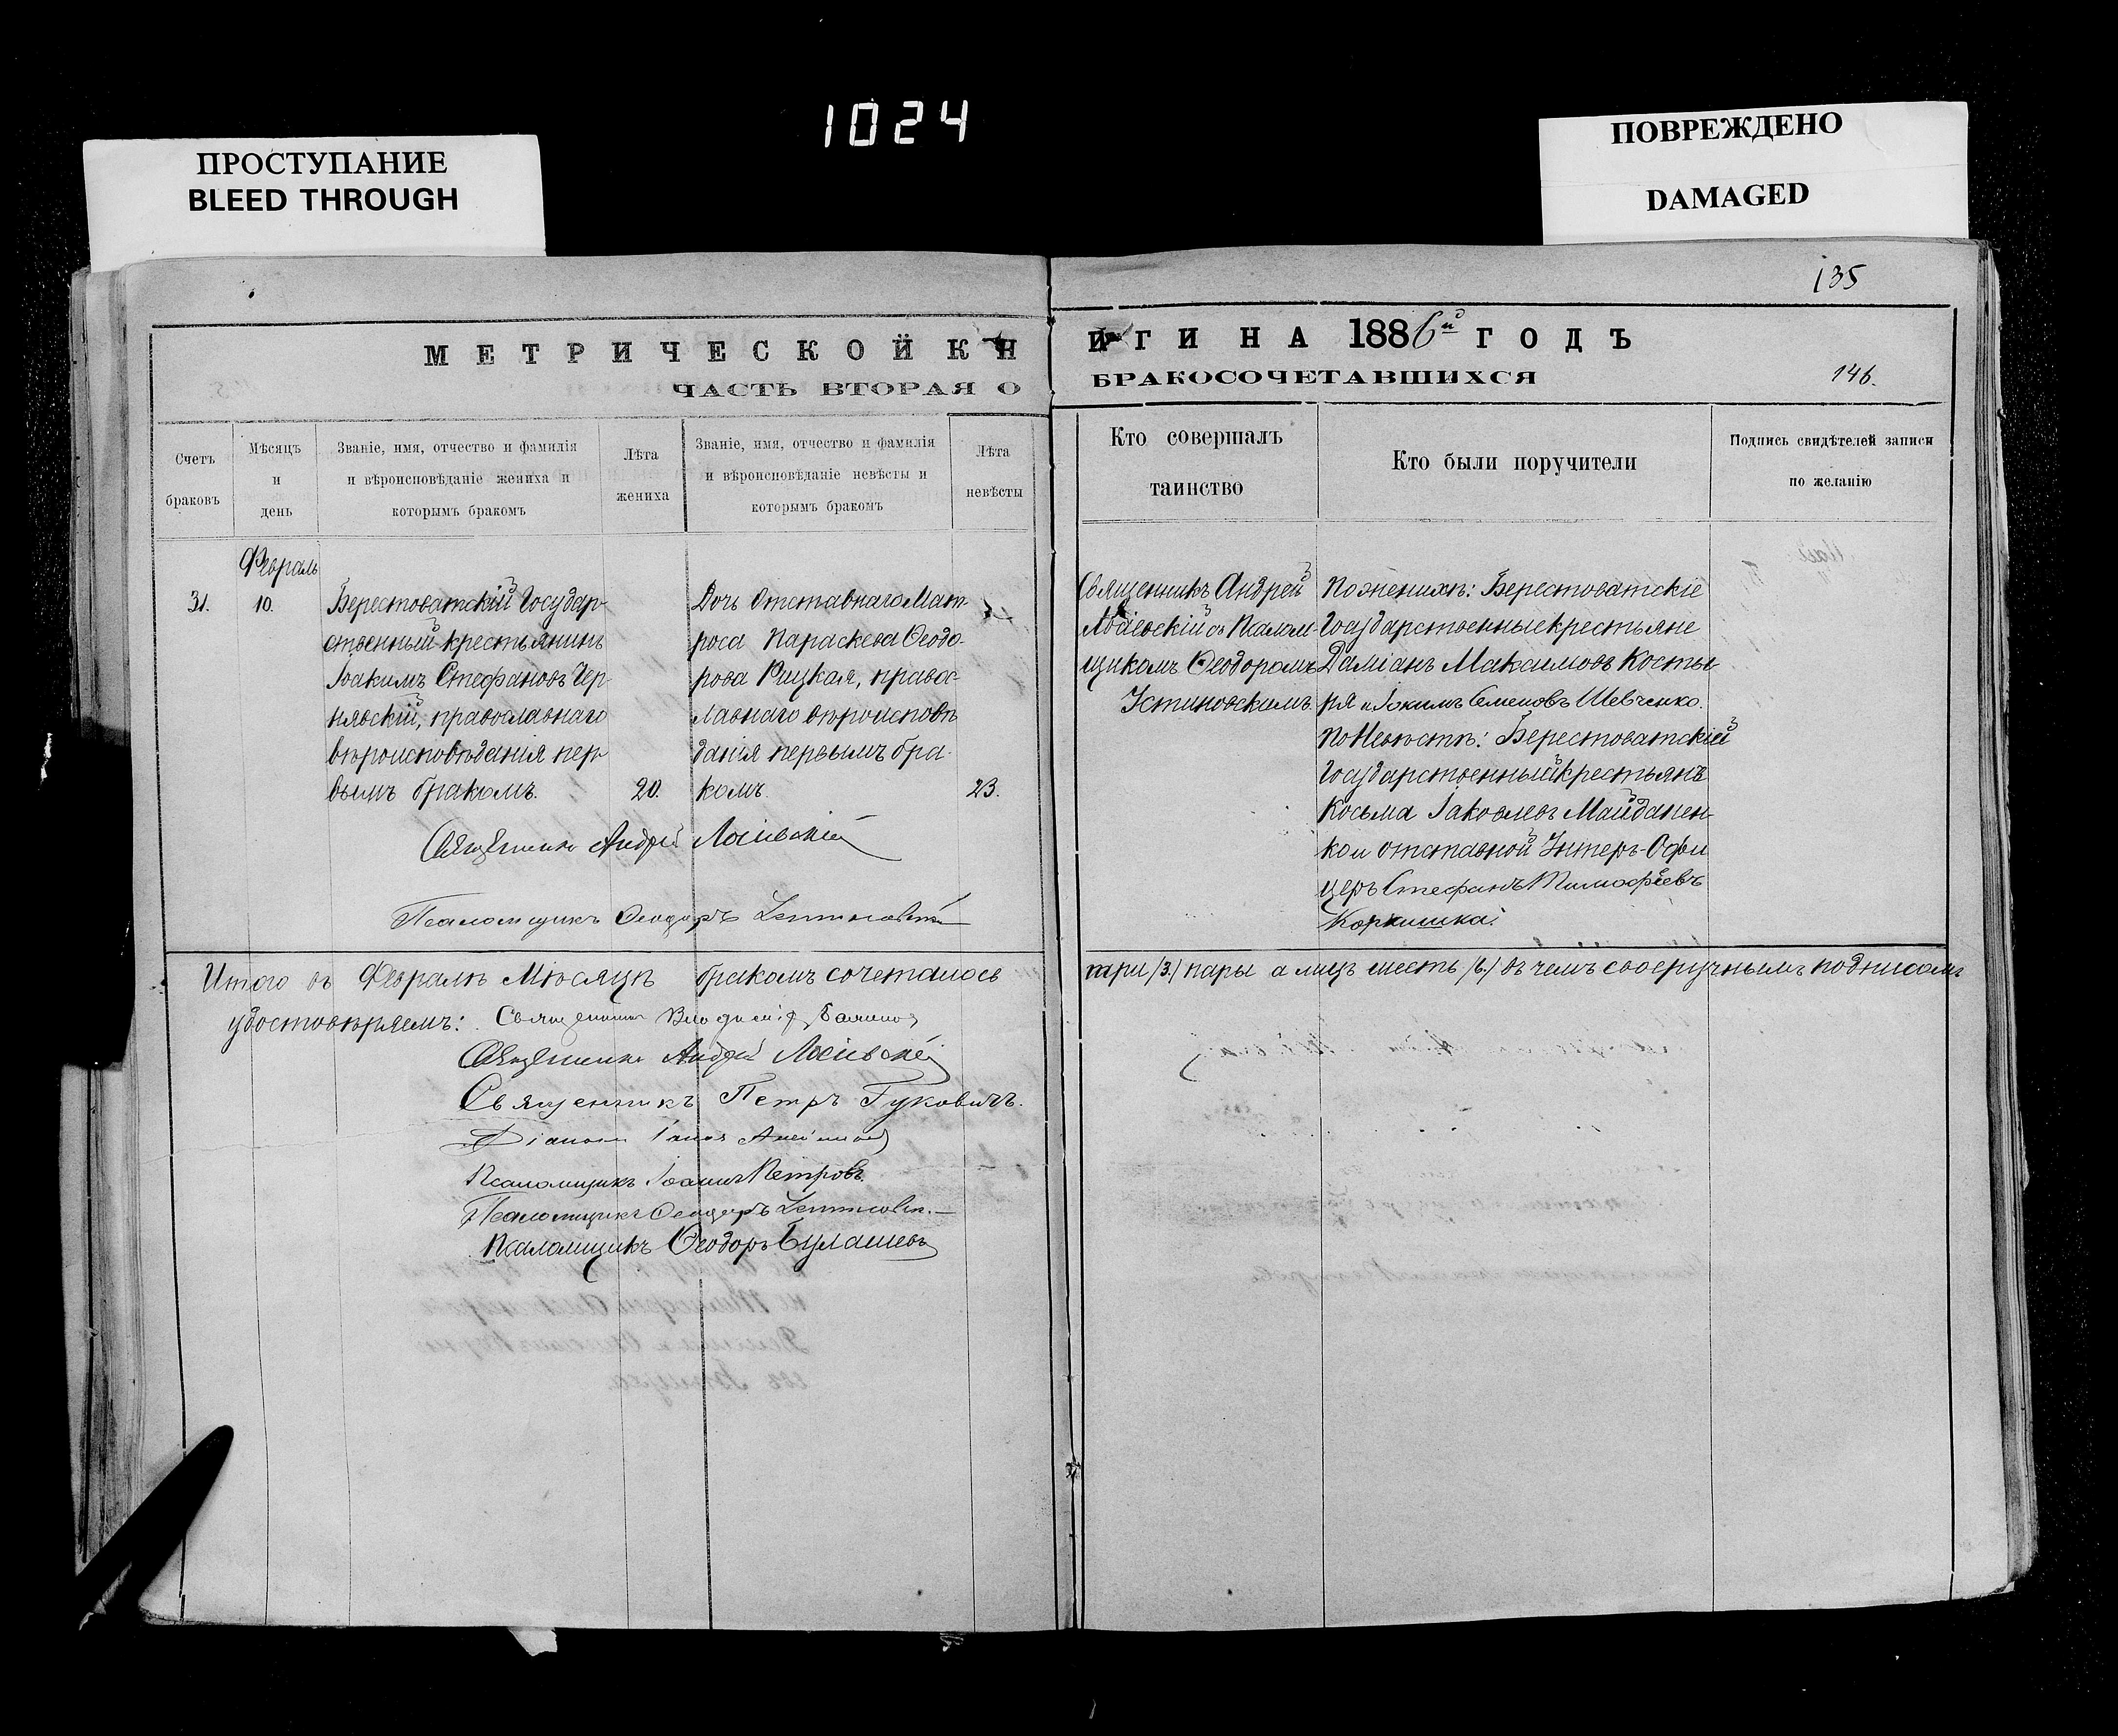 1024
ПРОСТУПАНИЕ
BLEED THROUGH
ПОВРЕЖДЕНО
DAMAGED
135
МЕТРИЧЕСКОЙ КН
ИГИ НА 1886й ГОДЪ
ЧАСТЬ ВТОРАЯ О
БРАКОСОЧЕТАВШИХСЯ
146.
Счетъ
браковъ
Мѣсяцъ
и
день
Званіе, имя, отчество и фамилія
и вѣроисповѣданіе жениха и
которымъ бракомъ
Лѣта
жениха
Званіе, имя, отчество и фамилія
и вѣроисповѣданіе невѣсты и
которымъ бракомъ
Лѣта
невѣсты
Кто совершалъ
таинство
Кто были поручители
Подпись свидѣтелей записи
по желанію
Февраль
31.
10.
Берестоватскій Государ-
ственный крестьянинъ
Іоакимъ Стефановъ Чер-
нявскій, православнаго
вѣроисповѣданія пер-
вымъ бракомъ.
20.
Дочь Отставнаго Мат-
роса Параскева Ѳеодо-
рова Рицкая, правос-
лавнаго вѣроисповѣ
данія первымъ бра-
комъ.
23.
Священникъ Андрей
съ Псалом-
щикомъ Ѳеодоромъ
Устиновскимъ
По женихѣ: Берестоватскіе
Государственные крестьяне
Даміанъ Максимовъ Косты-
ря и Іокимъ Семеновъ Шевченко.
По Невѣстѣ: Берестоватскій
Государственный крестьянъ
Косьма Іаковлевъ Майданен-
ко и отставной Унтеръ-Офи
церъ Стефанъ Тимофѣевъ
Священникъ Андрей
Псаломщикъ Ѳеодоръ Устиновскій
Итого въ Февралѣ Мѣсяцѣ бракомъ сочеталось
три /3./ пары а лицъ шесть /6./ въ чемъ своеручнымъ подписомъ
удостовѣряемъ: Священникъ
Священникъ Андрей
Священникъ Петръ Гуковичъ.
Діаконъ
Псаломщикъ Іоаннъ Петровъ.
Псаломщикъ Ѳеодоръ
Псаломщикъ Ѳеодоръ Булашевъ